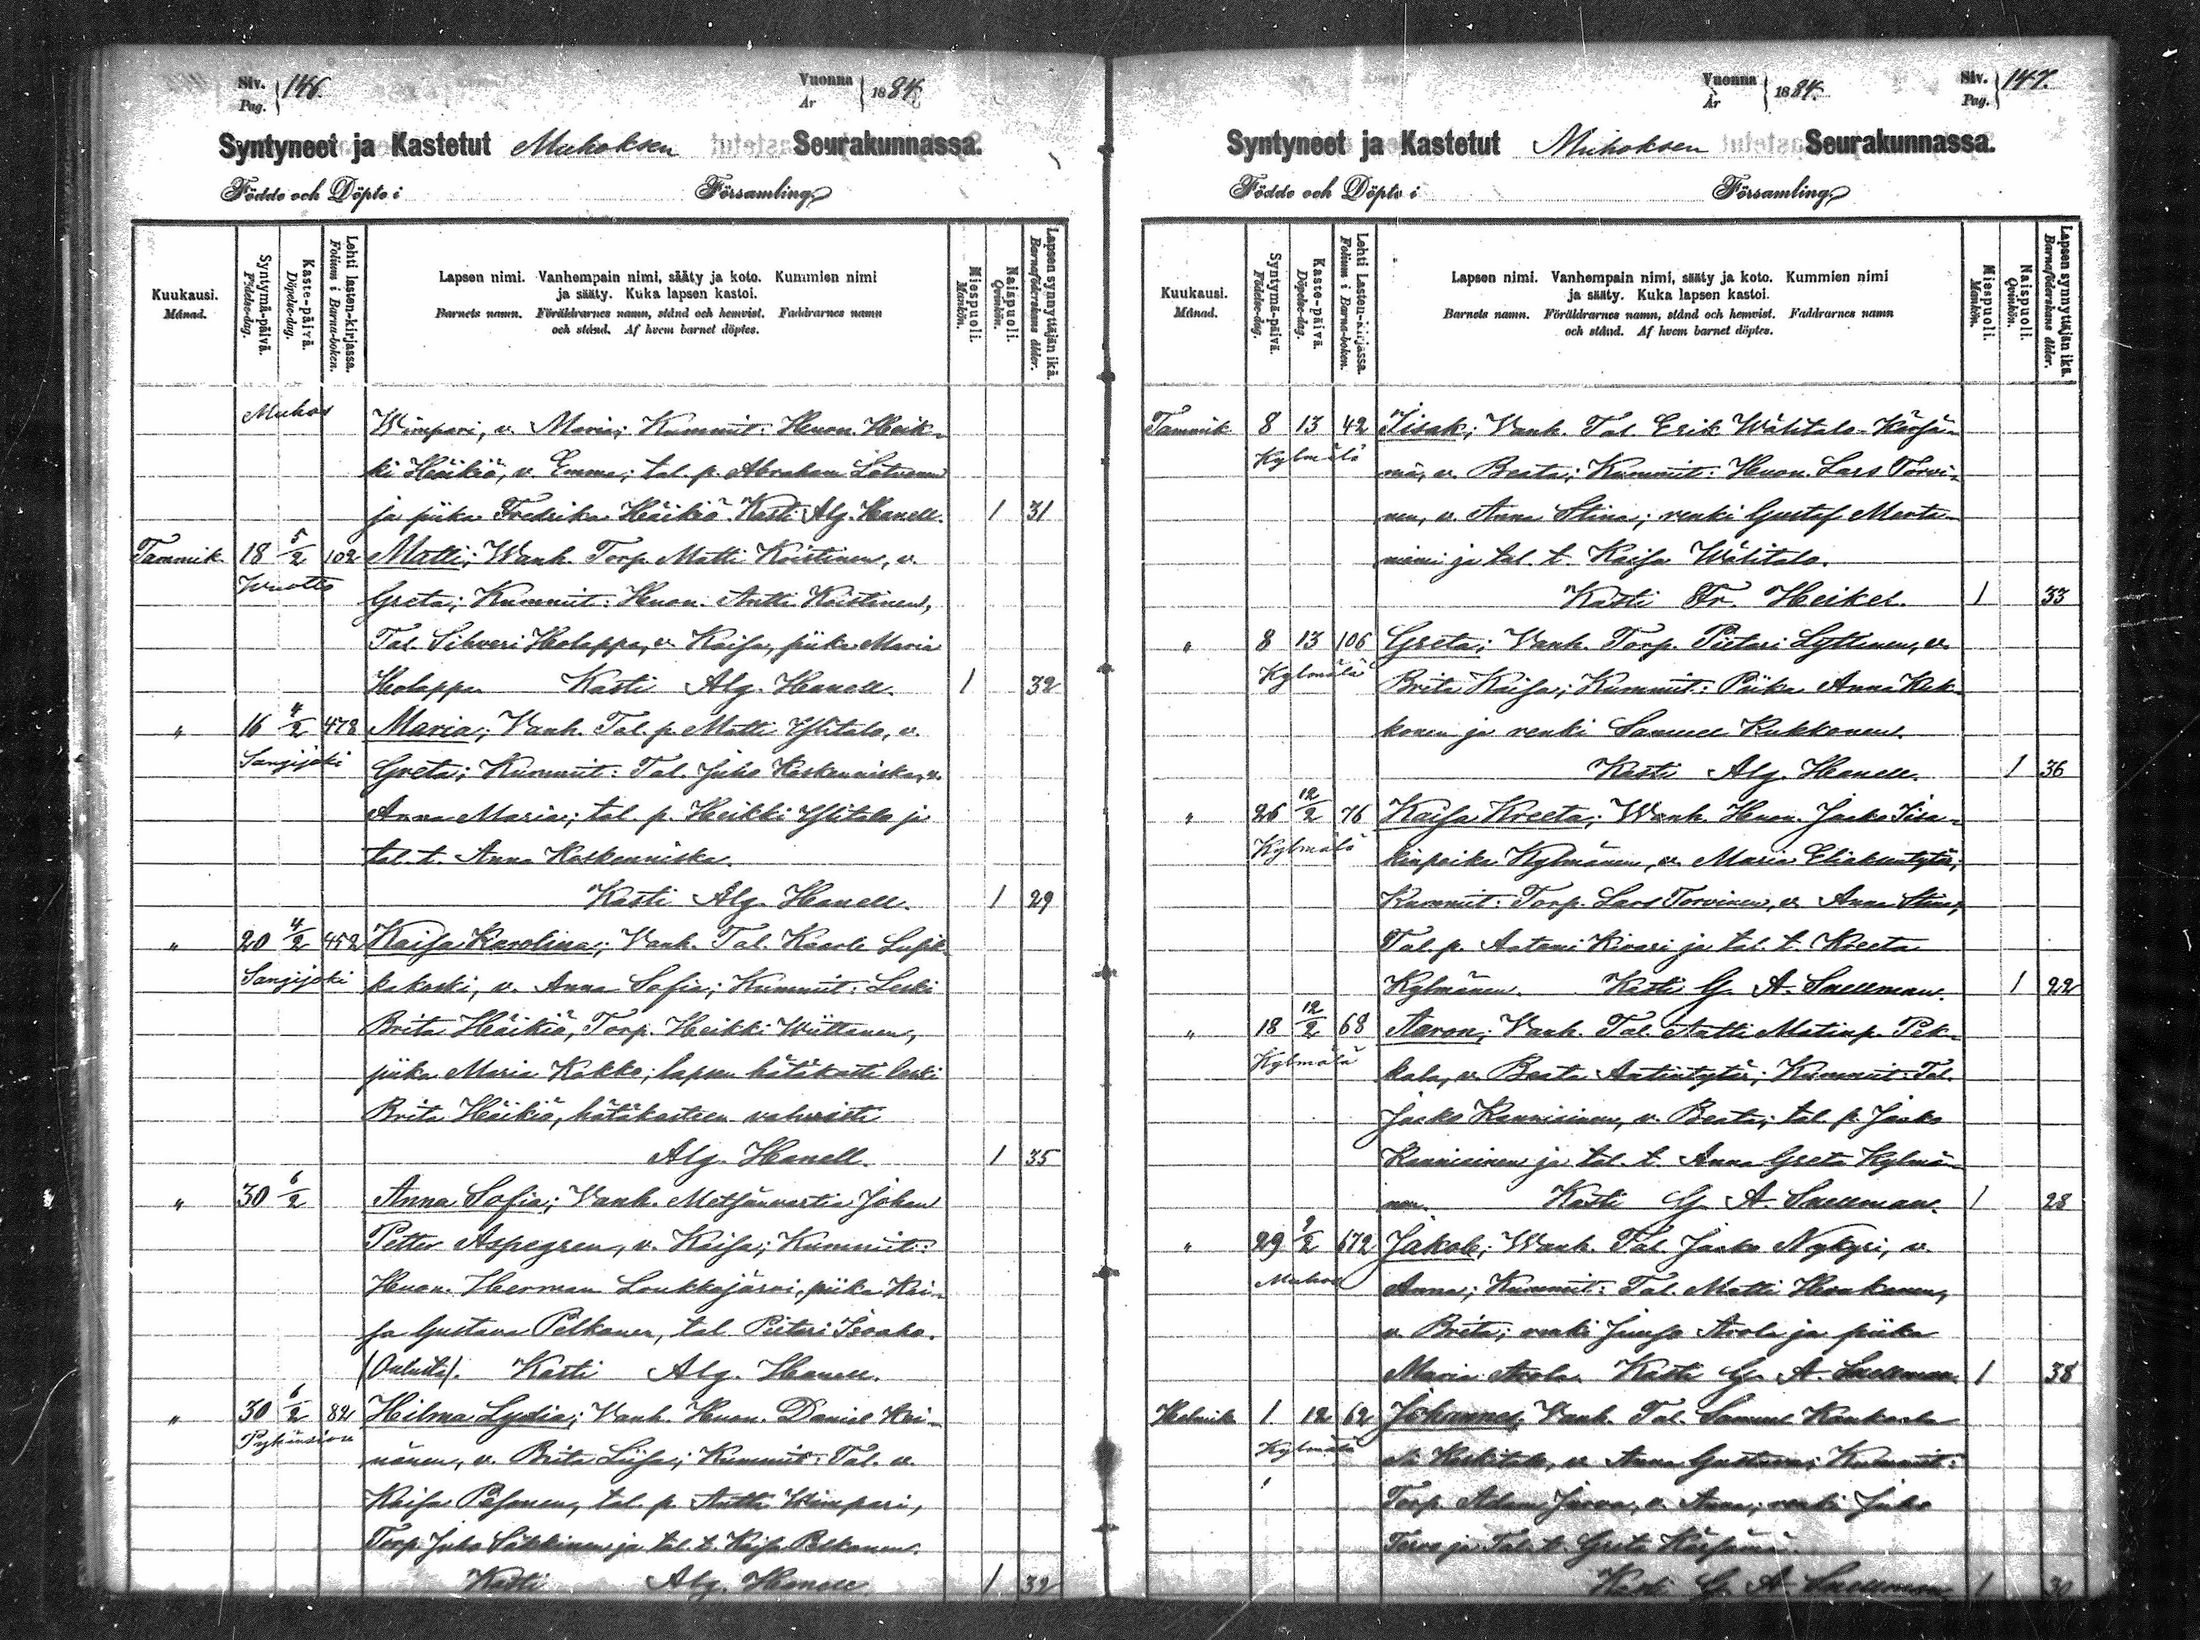 Siv. 146.
Pag.
Vuonna 1884.
År
Syntyneet ja Kastetut Muhoksen Seurakunnassa.
Födde och Döpte i Församling
Kuukausi.
Månad.
Syntymä-päivä.
Födelse-dag.
Kaste-päivä.
Döpelse-dag.
Lehti lasten-kirjassa.
Folium i Barna-boken.
Lapsen nimi. Vanhempain nimi, sääty ja koto. Kummien nimi
ja sääty. Kuka lapsen kastoi.
Barnets namn. Föräldrarnes namn, stånd och hemvist. Faddrarnes namn
och stånd. Af hvem barnet döptes.
Miespuoli.
Mankön.
Naispuoli.
Qvinkön.
Lapsen synnyttäjän ikä.
Barnaföderskans ålder.
Muhos Wimpari, v. Maria; Kummit: Huon. Heik-
ki Häikiö, v. Emma; tal. p. Abraham
ja piika Fredrika Häikiö. Kasti Alg. Hanell. 1 31
Tammik. 18 5/2 102 Matti; Wanh. Torp. Matti Koistinen, v.
Greta; Kummit: Huon. Antti Koistinen,
Tal. Sihveri Holappa, v. Kaisa, piika Maria
Holappa Kasti Alg. Hanell. 1 32
" 16 4/2 478 Maria; Vanh. Tal. p. Matti Ylitalo, v.
Sangijoki Greta; Kummit: Tal. Juho Koskenniska, v.
Anna Maria; tal. p. Heikki Ylitalo ja
tal. t. Anna Koskenniska.
Kasti Alg. Hanell. 1 29
" 20 4/2 452 Kaisa Karolina; Vanh. Tal. Kaarle
Sangijoki v. Anna Sofia; Kummit: Leski
Brita Häikiö, Torp. Heikki Wiittanen,
piika Maria Kokko; lapsen hätäkasti leski
Brita Häikiö, hätäkasteen vahvisti
Alg. Hanell. 1 35
" 30 6/2 Anna Sofia; Vanh. Metsänvartia Johan
Petter Aspegren, v. Kaisa; Kummit:
Huon. Herman Loukkojärvi, piika Kai-
sa Gustava Pelkonen, tal. Pietari Isoaho.
(Oulusta). Kasti Alg. Hanell.
" 30 6/2 82 Hilma Lydia; Vanh. Huon. Daniel Hei-
Pyhänsivu nänen, v. Brita Liisa; Kummit: Tal. v.
Kaisa Pesonen, tal. p. Antti Wimpari,
Torp. Juho Säkkinen ja tal. t. Kaisa Pelkonen.
Kasti Alg. Hanell 1 32
Vuonna 1884.
År
Siv. 147.
Pag.
Syntyneet ja Kastetut Muhoksen Seurakunnassa.
Födde och Döpte i Församling
Kuukausi.
Månad.
Syntymä-päivä.
Födelse-dag.
Kaste-päivä.
Döpelse-dag.
Lehti Lasten-kirjassa.
Folium i Barna-boken.
Lapsen nimi. Vanhempain nimi, sääty ja koto. Kummien nimi
ja sääty. Kuka lapsen kastoi.
Barnets namn. Föräldrarnes namn, stånd och hemvist. Faddrarnes namn
och stånd. Af hvem barnet döptes.
Miespuoli.
Mankön.
Naispuoli.
Qvinkön.
Lapsen synnyttäjän ikä.
Barnaföderskans ålder.
Tammik. 8 13 42 Iisak; Vanh. Tal. Erik Wälitalo-Kärsä-
Kylmälä mä, v. Beata; Kummit: Huon. Lars Torvi-
nen, v. Anna Stina; renki Gustaf Morta-
niemi ja tal. t. Kaisa Wälitalo.
Kasti Fr. Heikel. 1 33
" 8 13 106 Greta; Vanh. Torp. Pietari Lyttinen, v.
Kylmälä Brita Kaisa; Kummit: Piika Anna Kuk-
konen ja renki Samuel Kukkonen.
Kasti Alg. Hanell. 1 36
" 26 12/2 76 Kaisa Kreeta; Wanh. Huon. Jaako Iisa-
Kylmälä kinpoika Kylmänen, v. Maria Eliaksentytär;
Kummit: Torp. Lars Torvinen, v. Anna Stina,
Tal. p. Antami Kivari ja tal. t. Kreeta
Kylmänen. Kasti G. A. Snellman. 1 22
" 18 12/2 68 Aaron; Vanh. Tal. Antti Matinp. Pek-
Kylmälä kala, v. Beata Antintytär; Kummit: Tal.
Jaako Kanniainen, v. Beata; tal. p. Jaako
Kanniainen ja tal. t. Anna Greta Kylmä-
nen. Kasti G. A. Snellman. 1 28
" 29 9/2 672 Jakob; Wanh. Tal. Jaako Nykyri, v.
Muhos Anna; Kummit: Tal. Matti Huukanen,
v. Brita; renki Junso Arola ja piika
Maria Arola. Kasti G. A. Snellman. 1 38
Helmik. 1 12 62 Johannes; Vanh. Tal. Samuel
Kylmälä Keskitalo, v. Anna Gustava; Kummit:
Torp. Adam Jurva, v. Anna; renki Juho
Tervo ja Tal. t. Greta Kärsämä.
Kasti G. A. Snellman 1 30